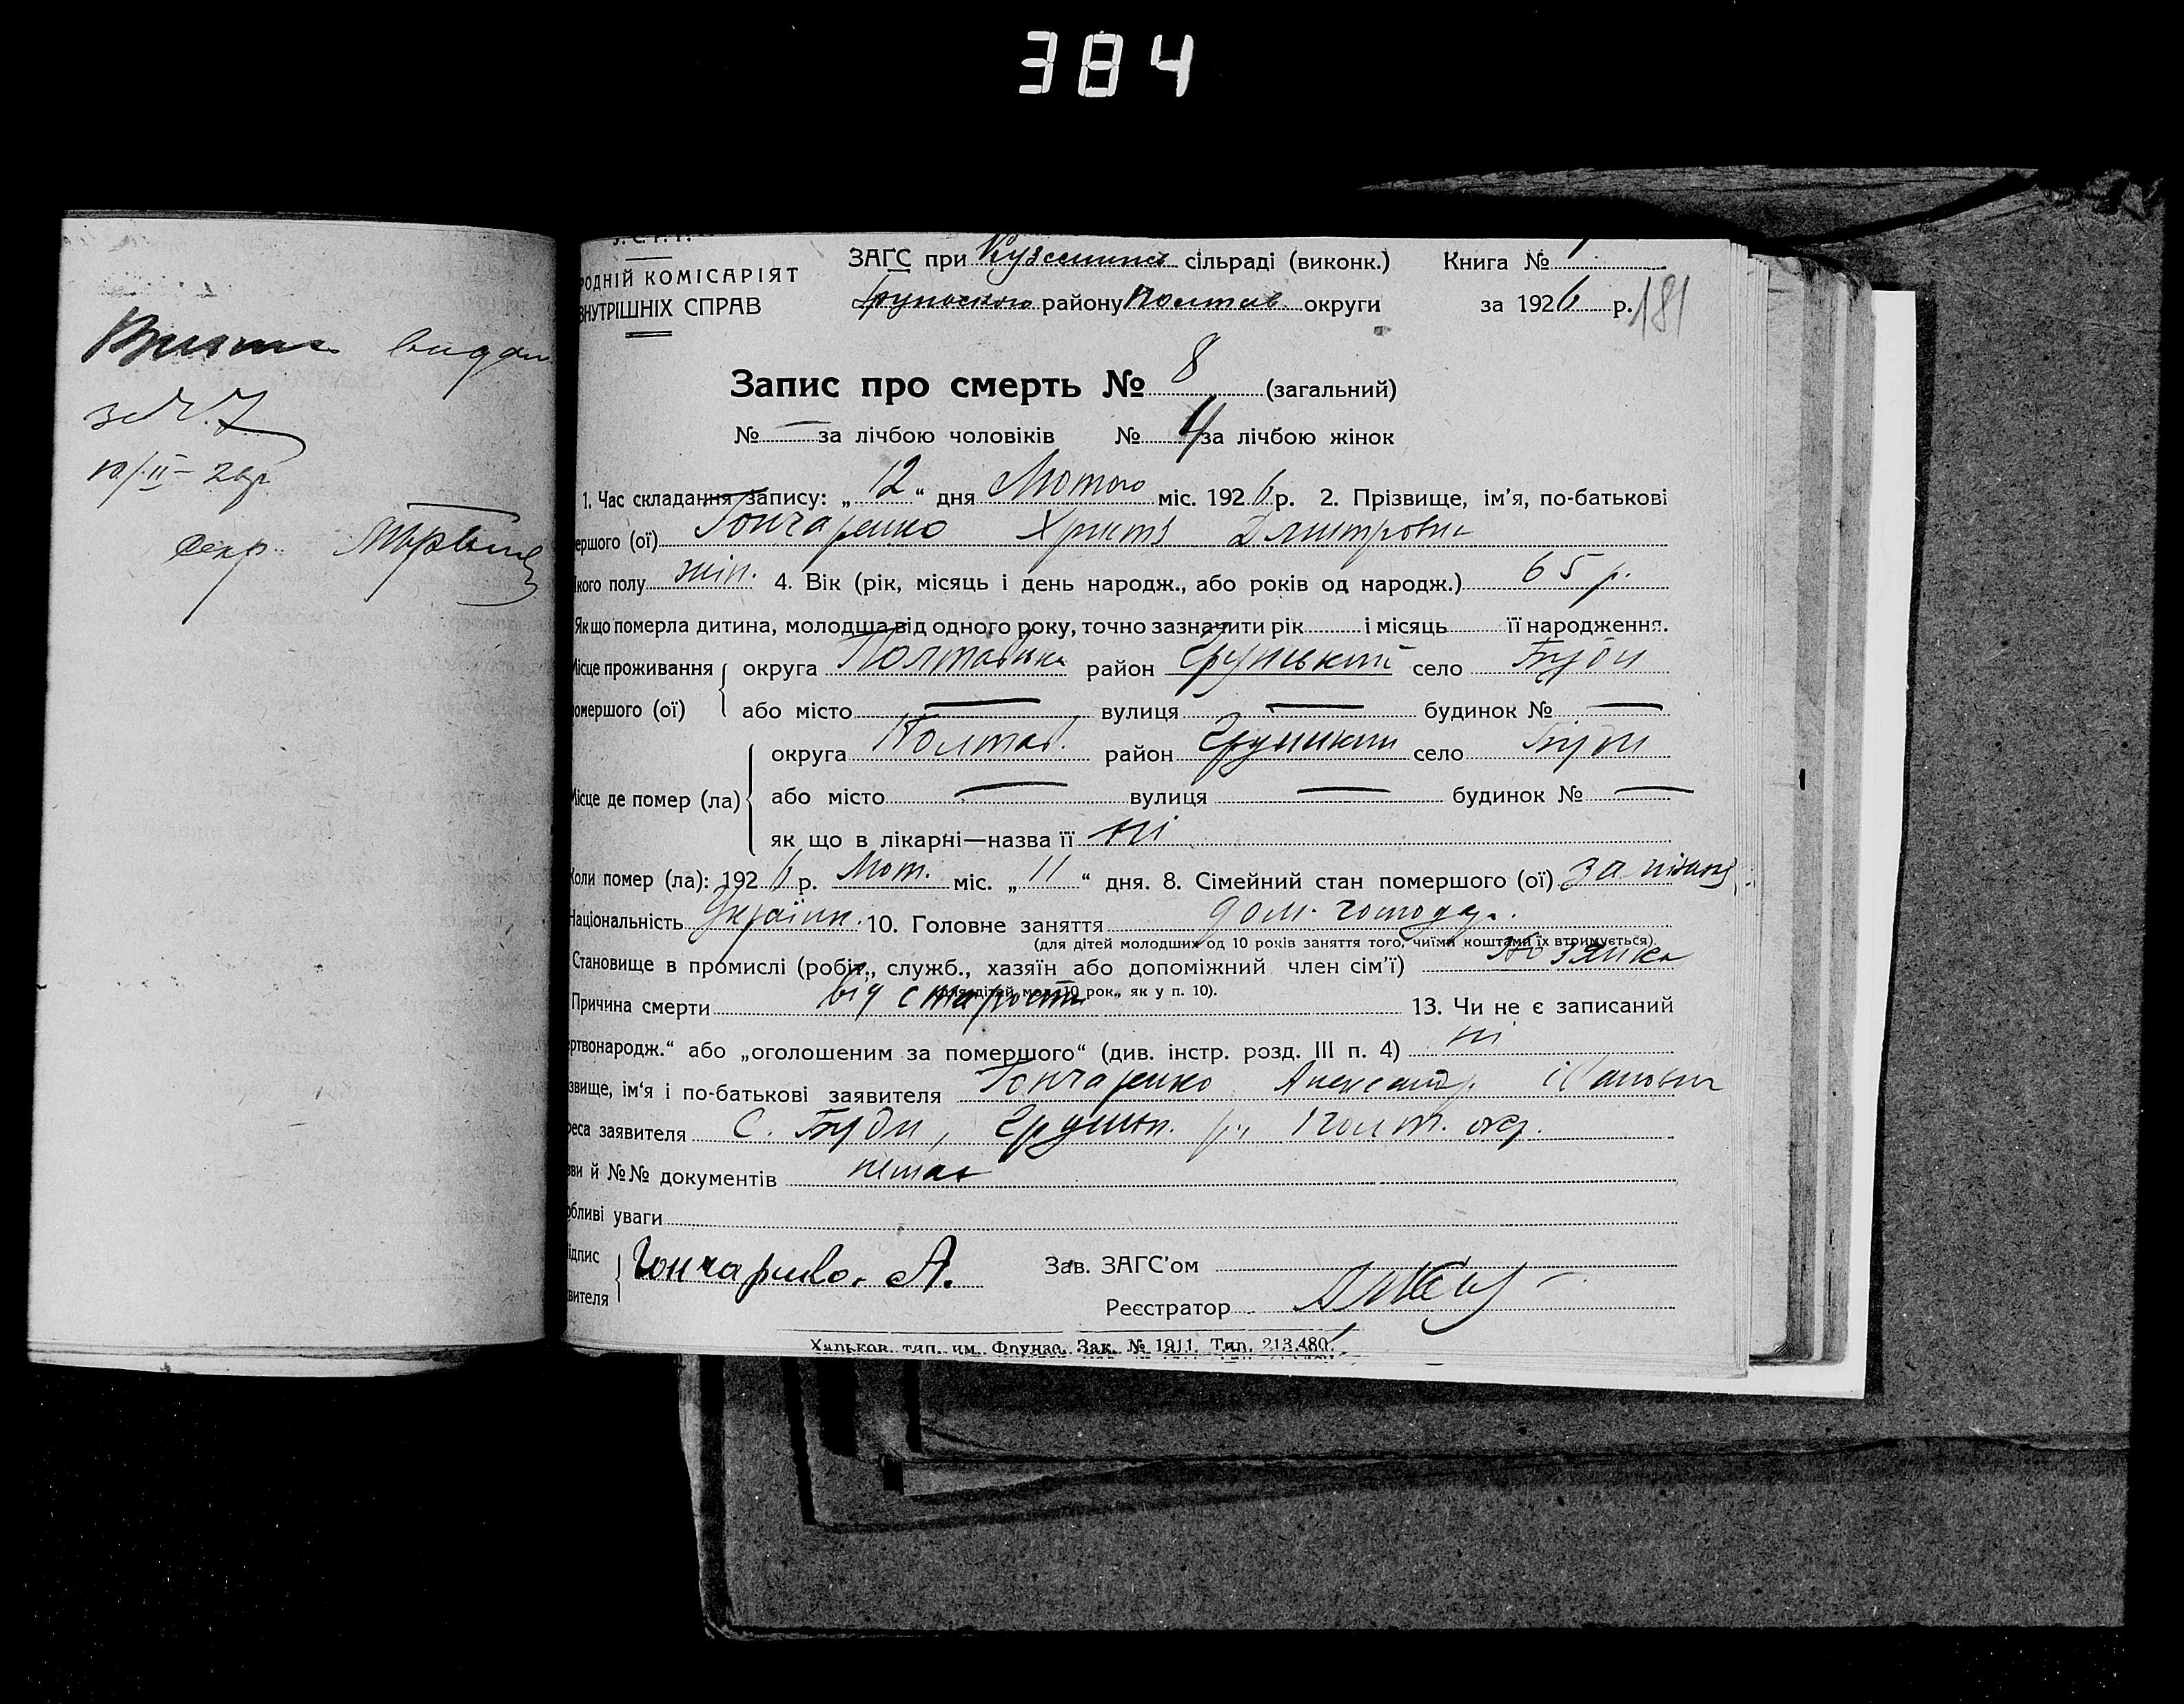 384
У.С.Р.Р.
РОДНІЙ КОМІСАРІЯТ
ВНУТРІШНІХ СПРАВ
ЗАГС при сільраді (виконк.)
району Полтав. округи
Книга № 1
за 1926 р.
181
Запис про смерть № 8 (загальний)
№ — за лічбою чоловіків № 4 за лічбою жінок
1. Час складання запису: „12“ дня Лютого міс. 1926 р. 2. Прізвище, ім’я, по-батькові
ершого (ої) Гончаренко Христя Дмитровна
якого полу жін. 4. Вік (рік, місяць і день народж., або років од народж.) 65 р.
Як що померла дитина, молодша від одного року, точно зазначити рік і місяць її народження.
Місце проживання округа Полтавська район Грунський село Буди
помершого (ої) або місто — вулиця — будинок № —
округа Полтав. район Грунський село Буди
Місце де помер (ла) або місто — вулиця — будинок № —
як що в лікарні—назва її ні
Коли помер (ла): 1926 р. Лют. міс. „11“ дня. 8. Сімейний стан помершого (ої)
Національність Українк. 10. Головне заняття дом. господар.
(для дітей молодших од 10 років заняття того, чиїми коштами їх втримується).
Становище в промислі (робіт., служб., хазяїн або допоміжний член сім’ї) хозяйка
(для дітей мол. 10 рок., як у п. 10).
Причина смерти від старости 13. Чи не є записаний
ртвонародж.“ або „оголошеним за помершого“ (див. інстр. розд. III п. 4) ні
звище, ім’я і по-батькові заявителя Гончаренко Александр Іванович
реса заявителя С. Буди, Грунськ. р., Полт. окр.
зви й №№ документів немає
обливі уваги
ідпис
вителя
Гончаренко. А.
Зав. ЗАГС’ом
Реєстратор
Харьков. тип. им. Фрунзе. Зак. № 1911. Тип. 213.480.
видан
за №. 7
10/II – 26р
секр.